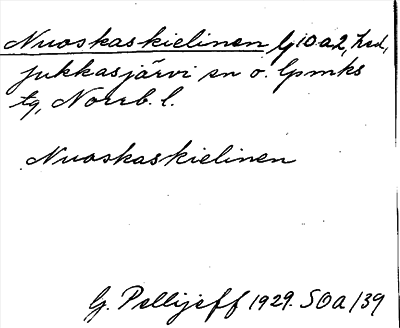 Nuoskaskielinen lj 10a2, hsd,
Jukkasjärvi sn o. lpmks
tg, Norrb. l.
Nuoskaskielinen
G. Pellijeff 1929. SOA/39